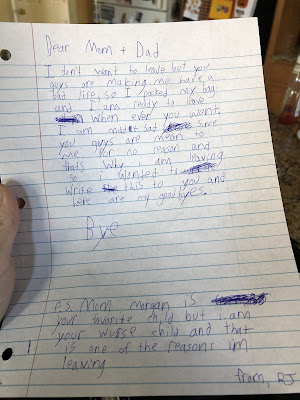 Dear Mom + Dad
I don't want to leave but you
guys are making me have a
bad life, so I packed my bag
and I am ready to leave
when ever you want.
I am sad since
you guys are mean to
me for no reason and
thats why I am leaving
so i wanted to
write this to you and
here are my goodbyes.
Bye
P.S Mom morgan is
your favorite child but i am
your wurse child and that
is one of the reasons im
leaving
from, RJ